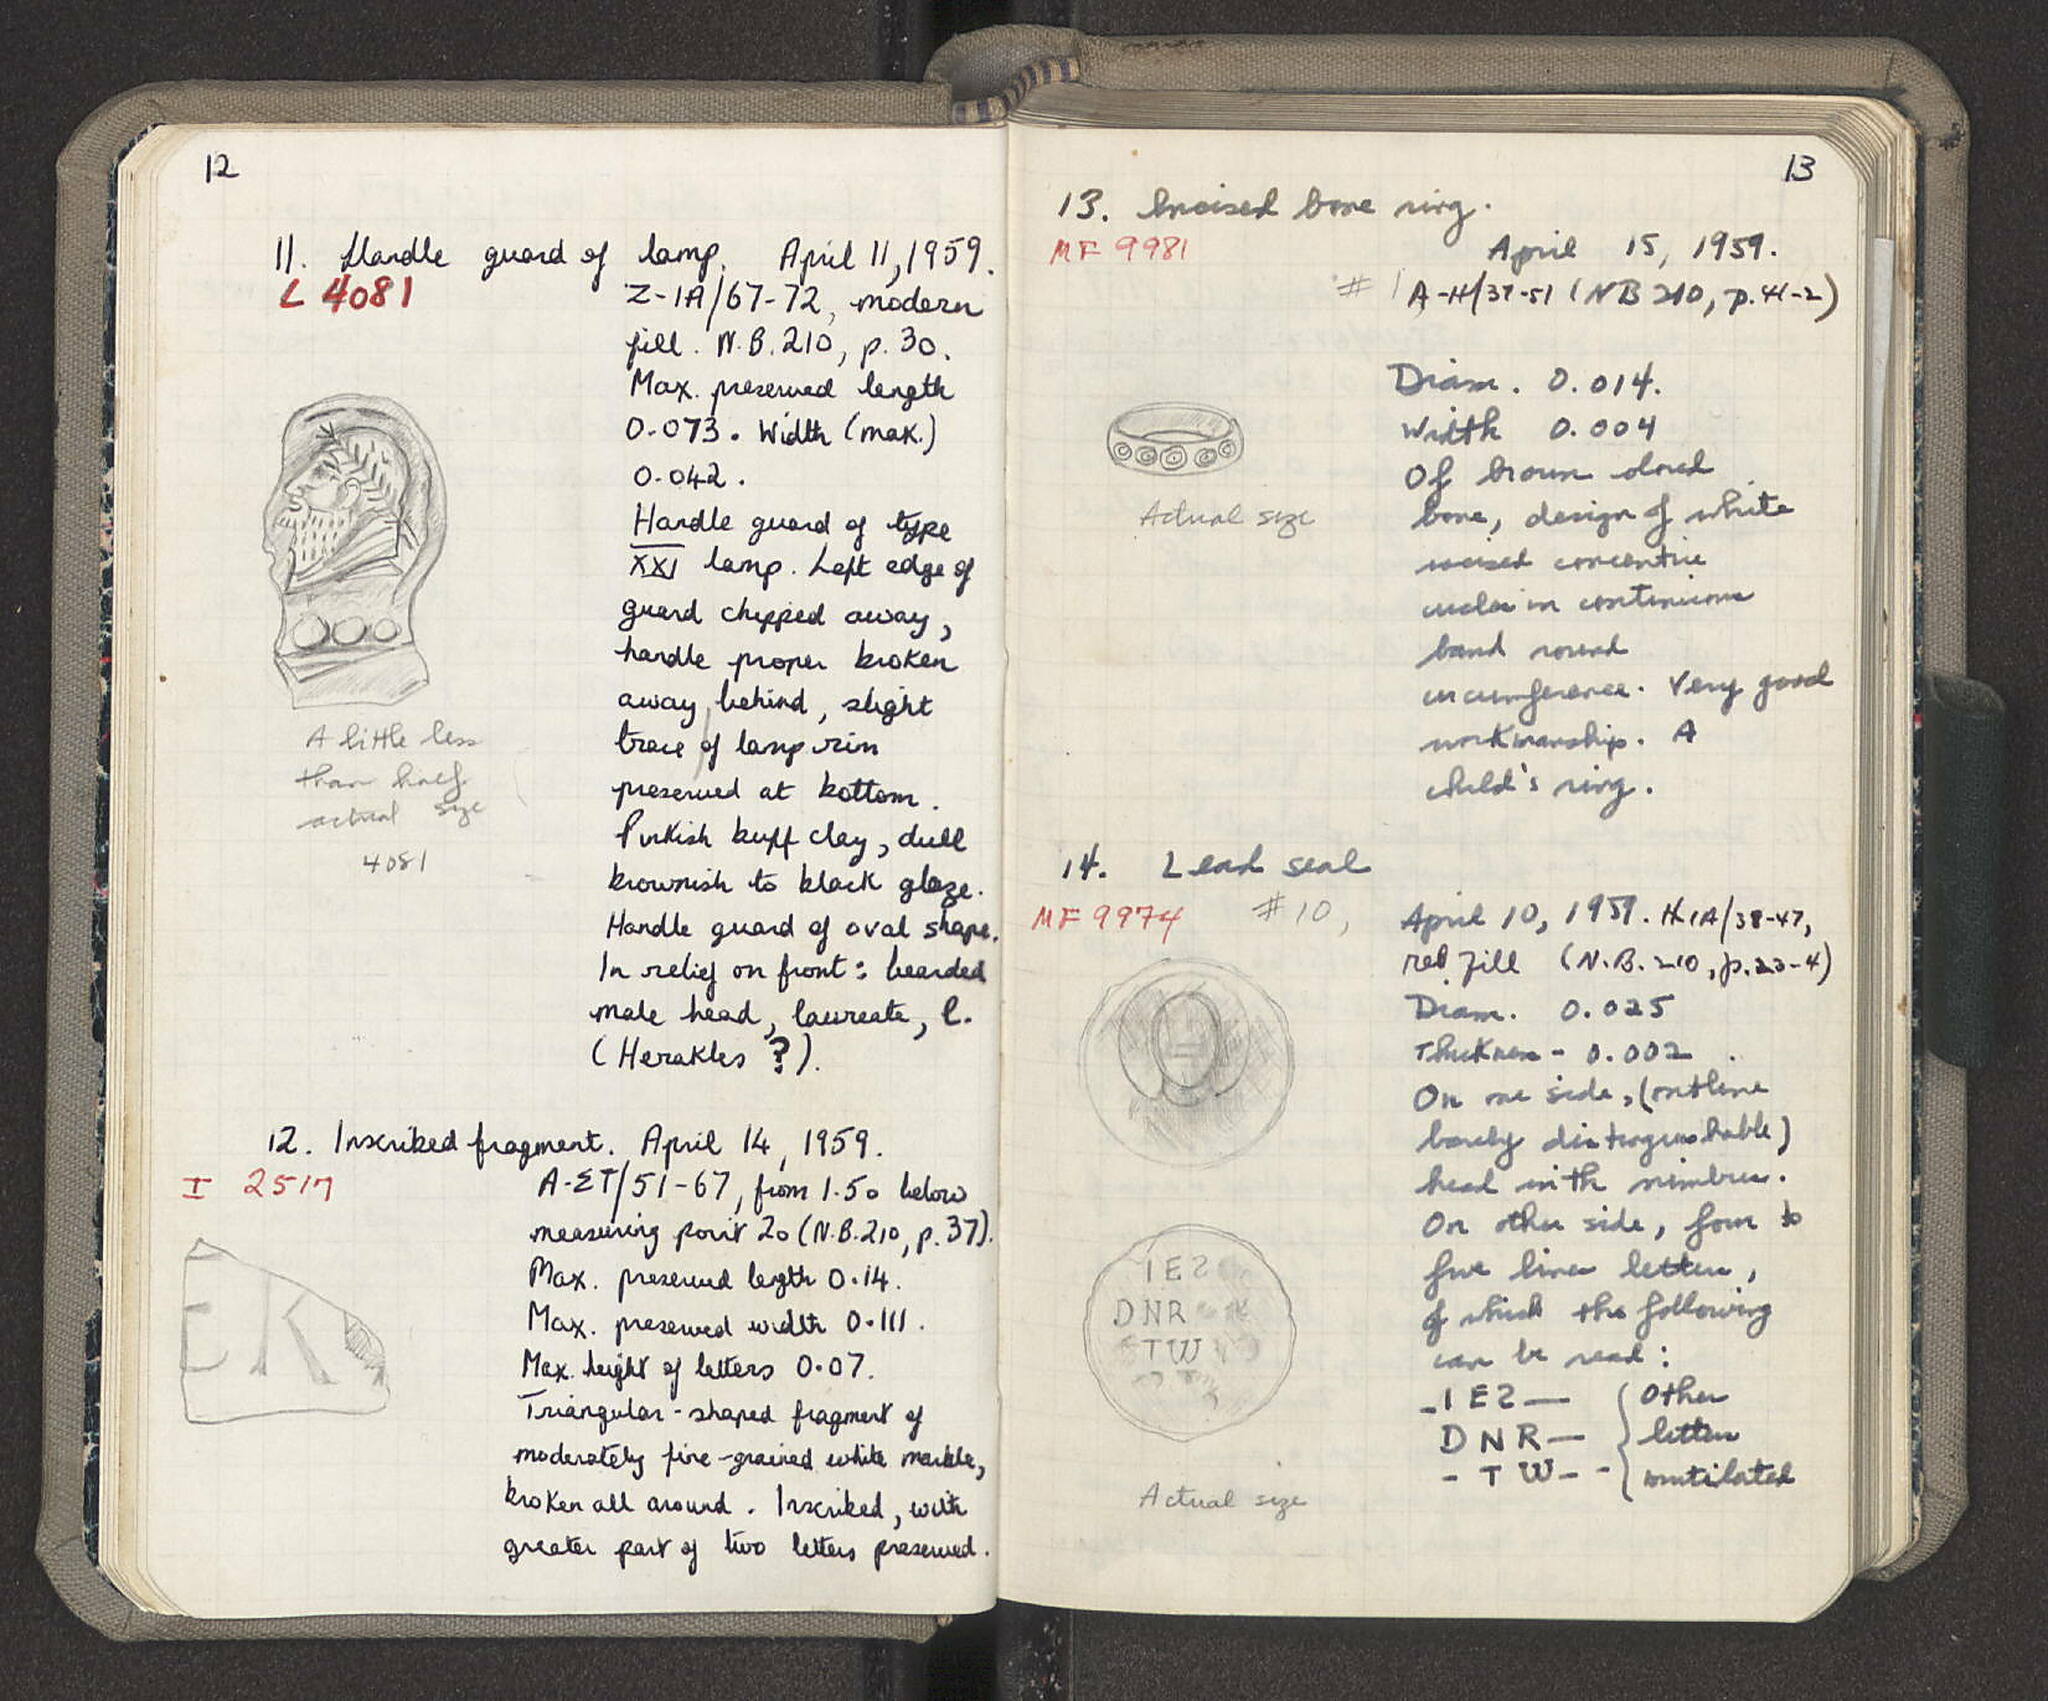 12
11. Handle guard of lamp. April 11, 1959.
L 4081
Z-IA/67-72, modern
fill. N.B. 210, p. 30.
Max. preserved length
0.073. Width (max.)
0.042.
Handle guard of type
XXI lamp. Left edge of
guard chipped away,
handle proper broken
away behind, slight
trace of lamp rim
preserved at bottom.
Pinkish buff clay, dull
brownish to black glaze.
Handle guard of oval shape.
In relief on front: bearded
male head, laureate, l.
(Herakles ?).
A little less
than half
actual size
4081
12. Inscribed fragment. April 14, 1959.
I 2517
A-ΣΤ/51-67, from 1.50 below
measuring point 20 (N.B. 210, p. 37).
Max. preserved length 0.14.
Max. preserved width 0.111.
Max. height of letters 0.07.
Triangular-shaped fragment of
moderately fine-grained white marble,
broken all around. Inscribed, with
greater part of two letters preserved.
EK
13
13. Incised bone ring.
MF 9981
April 15, 1959.
# 1 A-H/37-51 (NB 210, p. 41-2)
Diam. 0.014.
Width 0.004
Of brown colored
bone, design of white
incised concentric
circles in continuous
band round
circumference. Very good
workmanship. A
child's ring.
Actual size
14. Lead seal
MF 9974
#10,
April 10, 1959. H-IA/38-47,
red fill (N.B. 210, p. 23-4)
Diam. 0.025
Thickness - 0.002.
On one side, (outline
barely distinguishable)
head with nimbus.
On other side, four to
five lines letters,
of which the following
can be read:
-IEƧ— { Other
DNR— letters
- TW- - mutilated
IEƧ
DNR
TW
Actual size